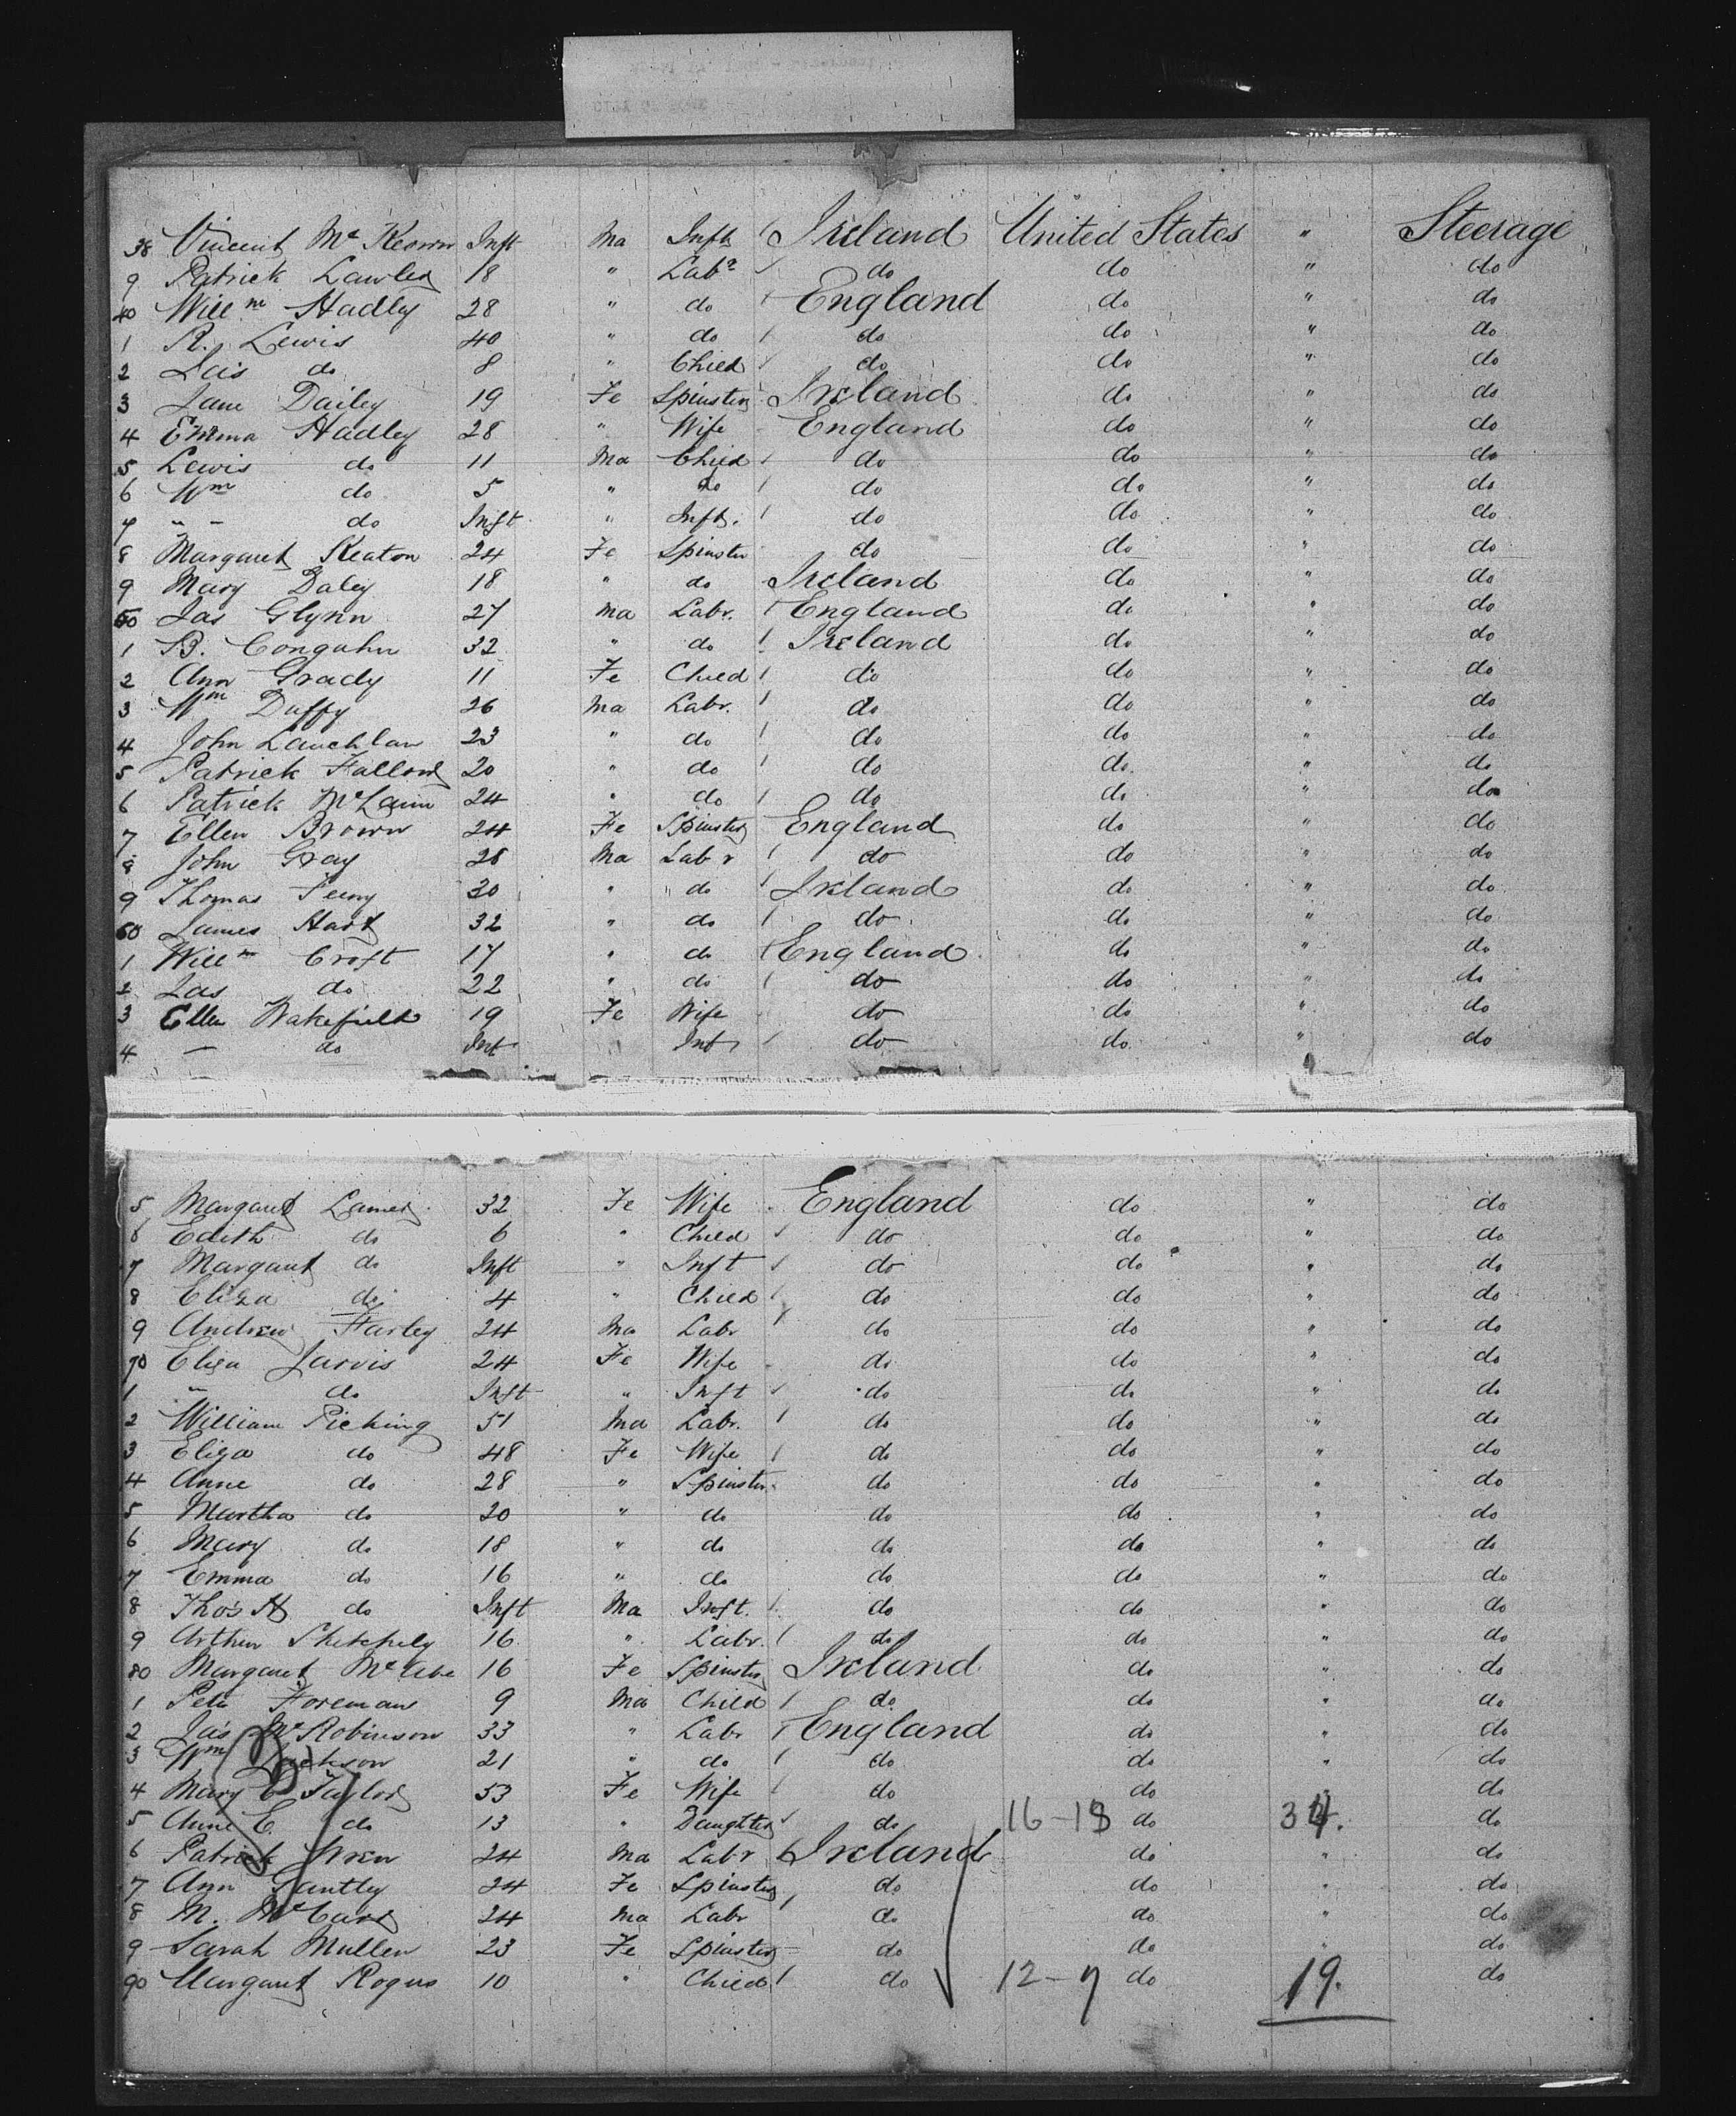 38 Vincent McKeown Inft Ma Inft Ireland United States " Steerage
9 Patrick Lawler 18 " Labr do do " do
40 Willm Hadley 28 " do England do " do
1 R. Lewis 40 " do do do " do
2 do 8 " Child do do " do
3 Jane Dailey 19 Fe Spinster Ireland do " do
4 Emma Hadley 28 " Wife England do " do
5 Lewis do 11 Ma Child do do " do
6 Wm do 5 " do do do " do
7 " - do Inft " Inft. do do " do
8 Margaret Keaton 24 Fe Spinster do do " do
9 Mary Daley 18 " do Ireland do " do
50 Jas Glynn 27 Ma Labr. England do " do
1 B. 32 " do Ireland do " do
2 Ann Grady 11 Fe Child do do " do
3 Wm Duffy 26 Ma Labr. do do " do
4 John Lauchlan 23 " do do do " do
5 Patrick Fallon 20 " do do do " do
6 Patrick 24 " do do do " do
7 Ellen Brown 24 Fe Spinster England do " do
8 John Gray 28 Ma Labr do do " do
9 Thomas 30 " do Ireland do " do
60 James Hart 32 " do do do " do
1 Willm Croft 17 " do England do " do
2 Jas do 22 " do do do " do
3 Ellen Wakefield 19 Fe Wife do do " do
4 — do Inf Inf do do " do
5 Margaret 32 Fe Wife England do " do
6 Edith do 6 " Child do do " do
7 Margaret do Inft " Inft do do " do
8 Eliza do 4 " Child do do " do
9 Andrew Farley 24 Ma Labr do do " do
70 Eliza Jarvis 24 Fe Wife do do " do
1 " do Inft " Inft do do " do
2 William Picking 51 Ma Labr. do do " do
3 Eliza do 48 Fe Wife do do " do
4 Anne do 28 " Spinster do do " do
5 Martha do 20 " do do do " do
6 Mary do 18 " do do do " do
7 Emma do 16 " do do do " do
8 Thos H do Inft Ma Inft. do do " do
9 Arthur 16 " Labr. do do " do
80 Margaret 16 Fe Spinster Ireland do " do
1 Peter Foreman 9 Ma Child do do " do
2 Jas Robinson 33 " Labr England do " do
3 Wm 21 " do do do " do
4 Mary E Taylor 53 Fe Wife do do " do
5 Anne E. do 13 " Daughter do 16-18 do 34. do
6 Patrick 24 Ma Labr Ireland do " do
7 Ann 24 Fe Spinster do do " do
8 M. 24 Ma Labr do do " do
9 Sarah Mullen 23 Fe Spinster do do " do
90 Margaret 10 " Child do 12-7 do 19. do